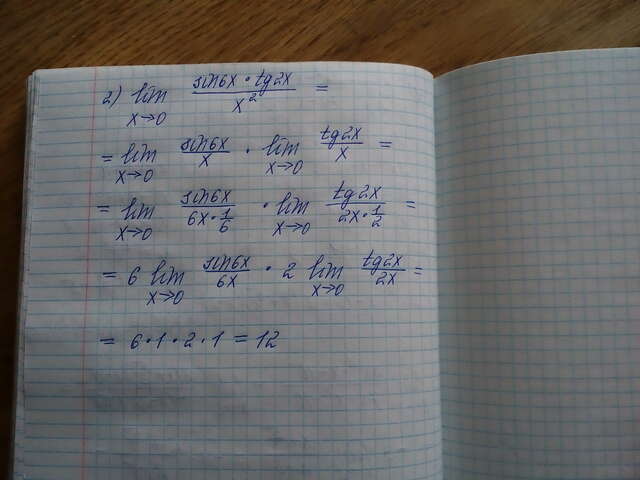 2) lim x→0 sin6x · tg2x / x² =
= lim x→0 sin6x / x · lim x→0 tg2x / x =
= lim x→0 sin6x / 6x · 1/6 · lim x→0 tg2x / 2x · 1/2 =
= 6 lim x→0 sin6x / 6x · 2 lim x→0 tg2x / 2x =
= 6 · 1 · 2 · 1 = 12